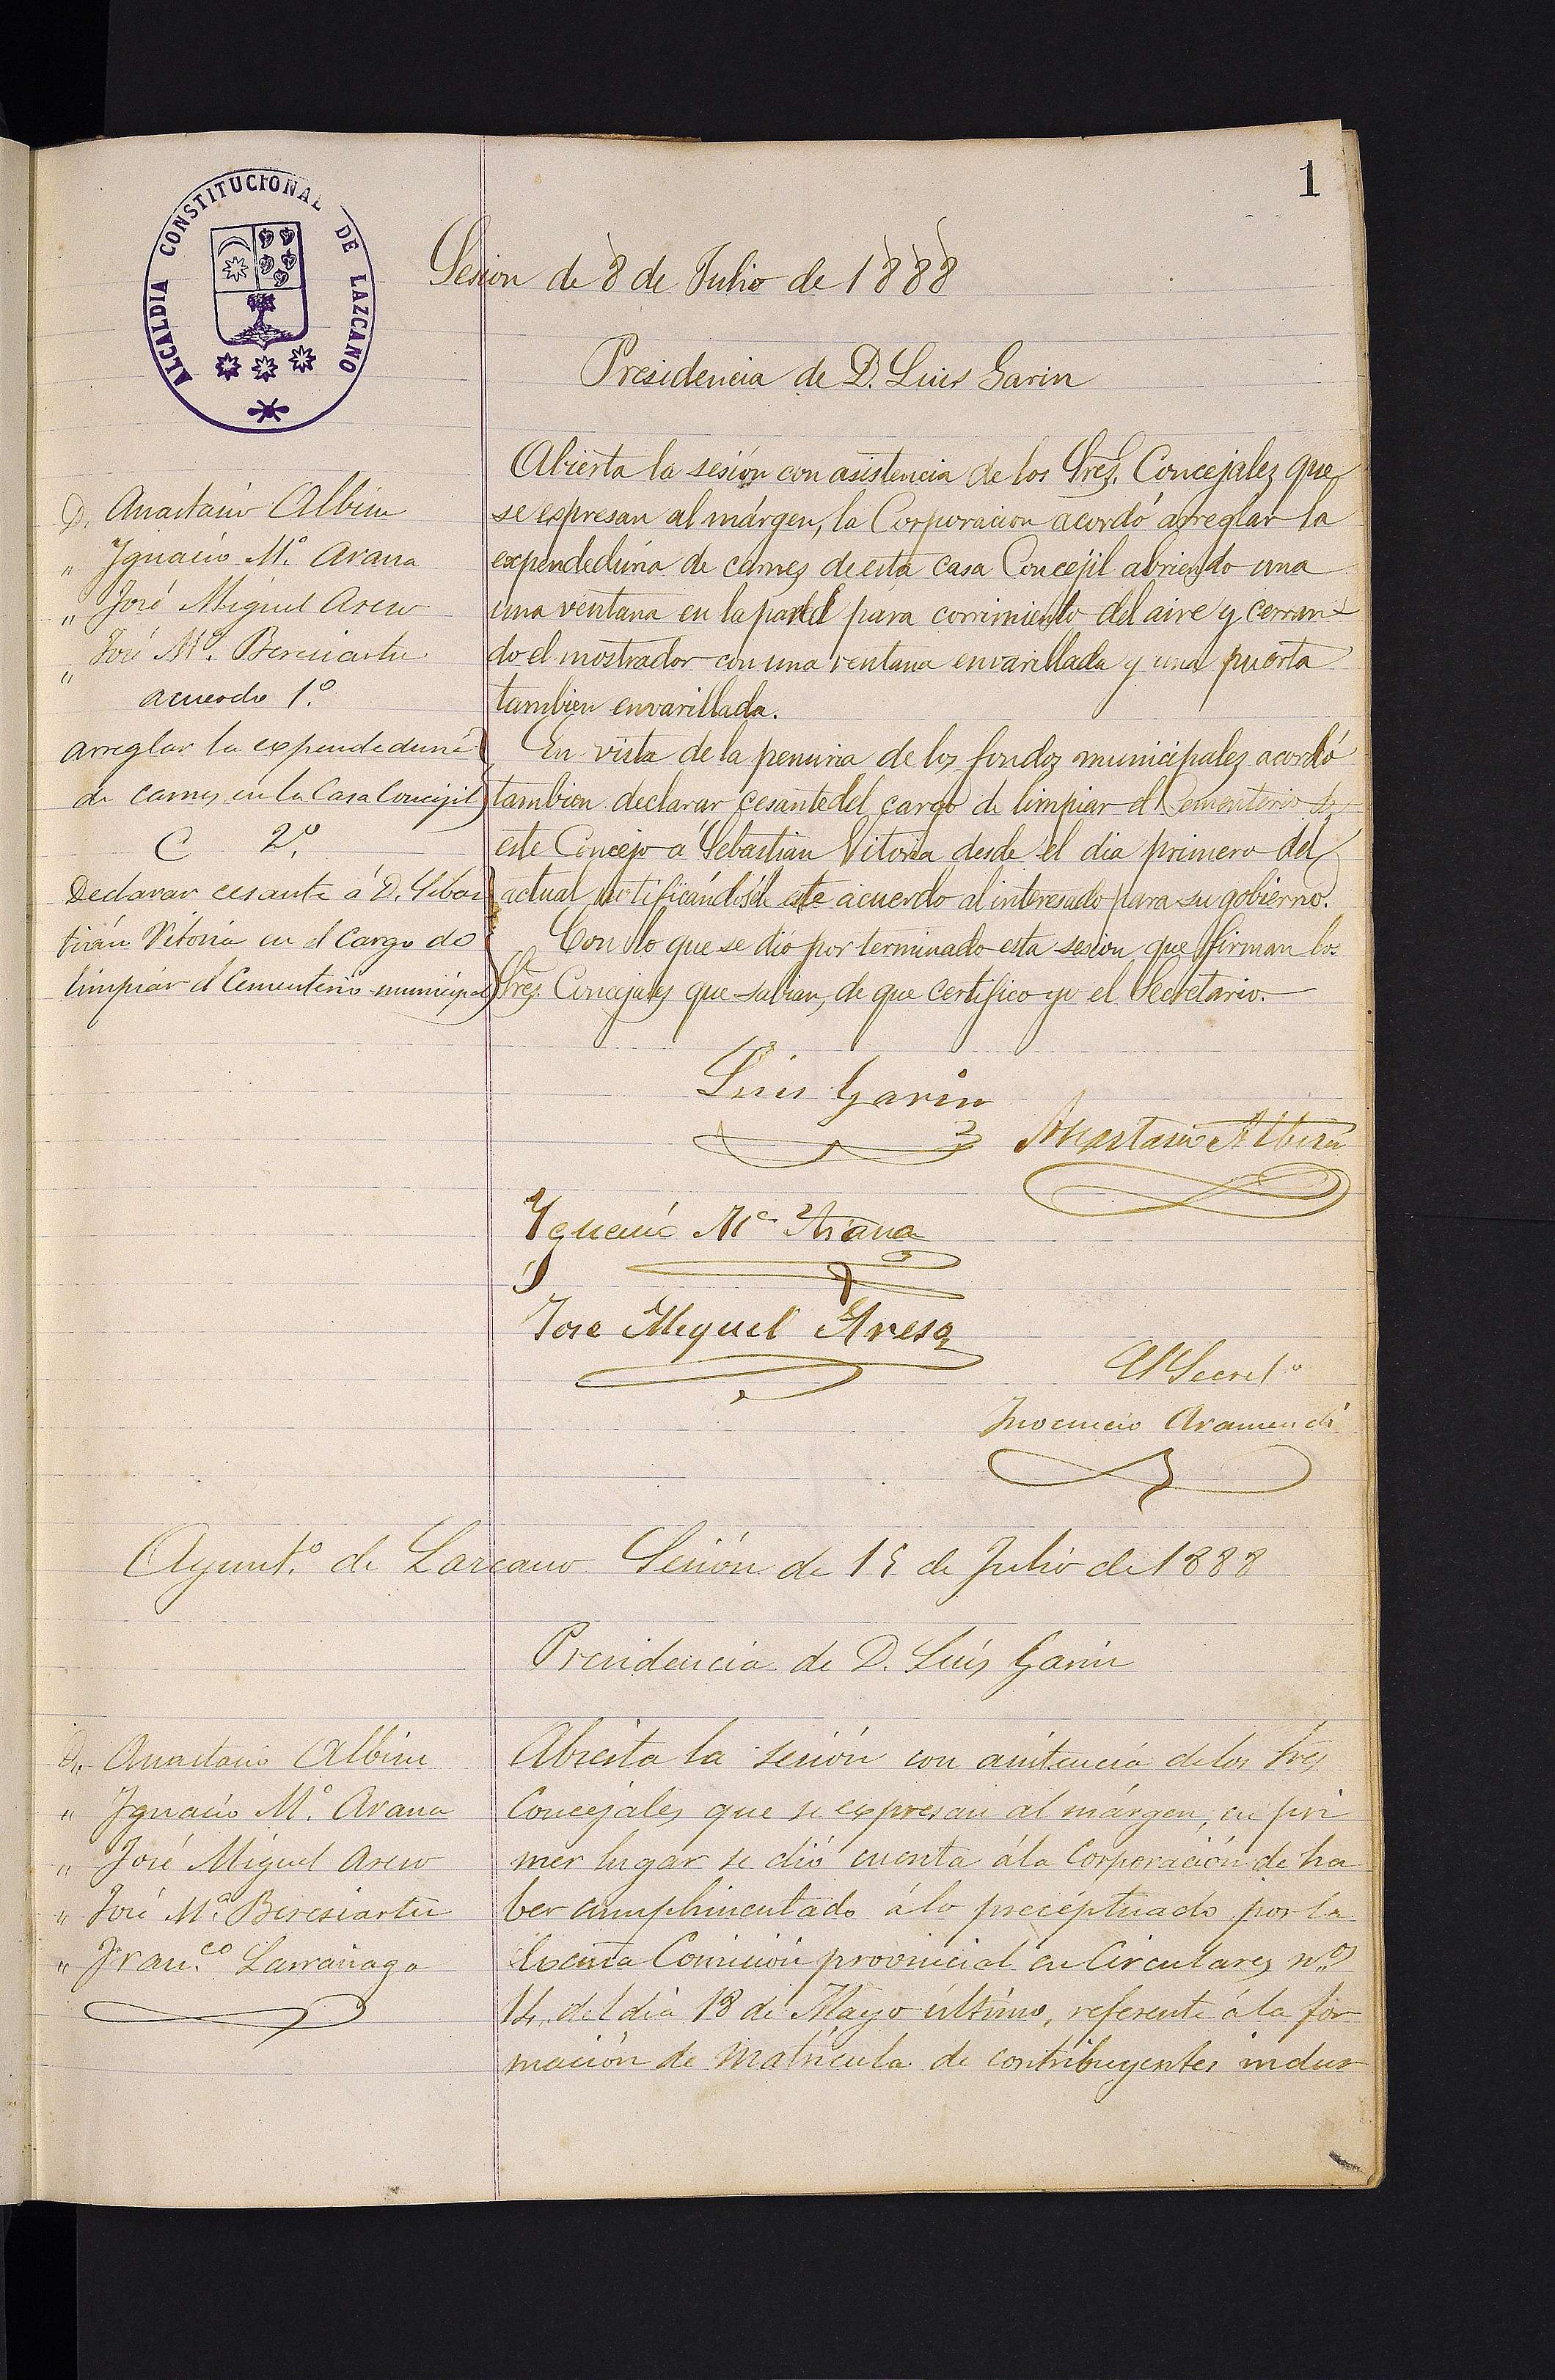 1
ALCALDIA CONSTITUCIONAL DE LAZCANO
Sesion de 8 de Julio de 1888
Presidencia de D. Luis Garin
D. Anastasio Albisu
" Ignacio M.ª Arana
" José Miguel Areso
" José M.ª Beresiartu
acuerdo 1.º
arreglar la expendeduria
de carnes en la Casa Concejil
C 2.º
Declarar cesante á D. Sebas
tián Vitoria en el cargo de
limpiar el Cementerio municipal
Abierta la sesión con asistencia de los Sres. Concejales que
se expresan al márgen, la Corporacion acordó arreglar la
expendeduria de carnes de esta casa Concejil abriendo una
una ventana en la pared para corrimiento del aire y cerran-
do el mostrador con una ventana envarillada y una puerta
tambien envarillada.
En vista de la penuria de los fondos municipales acordó
tambien declarar cesante del cargo de limpiar el Cementerio de
este Concejo á Sebastian Vitoria desde el dia primero del
actual notificándosele este acuerdo al interesado para su gobierno.
Con lo que se dió por terminado esta sesion que firman los
Sres. Concejales que sabian, de que certifico yo el Secretario.
Luis Garin
Anastasio Albisu
Ignacio M.ª Arana
Jose Miguel Areso
El Secret.º
Inocencio Aramendi
Ayunt.º de Lazcano Sesión de 15 de Julio de 1888
Presidencia de D. Luis Garin
D. Anastasio Albisu
" Ignacio M.ª Arana
" José Miguel Areso
" José M.ª Beresiartu
" Fran.co Larrañaga
Abierta la sesión con asistencia de los Sres
Concejales que se expresan al márgen, en pri
mer lugar se dió cuenta á la Corporación de ha
ber cumplimentado á lo preceptuado por la
Comisión provincial en Circulares n.º
14 del dia 18 de Mayo último, referente á la for
mación de Matrícula de contribuyentes indus